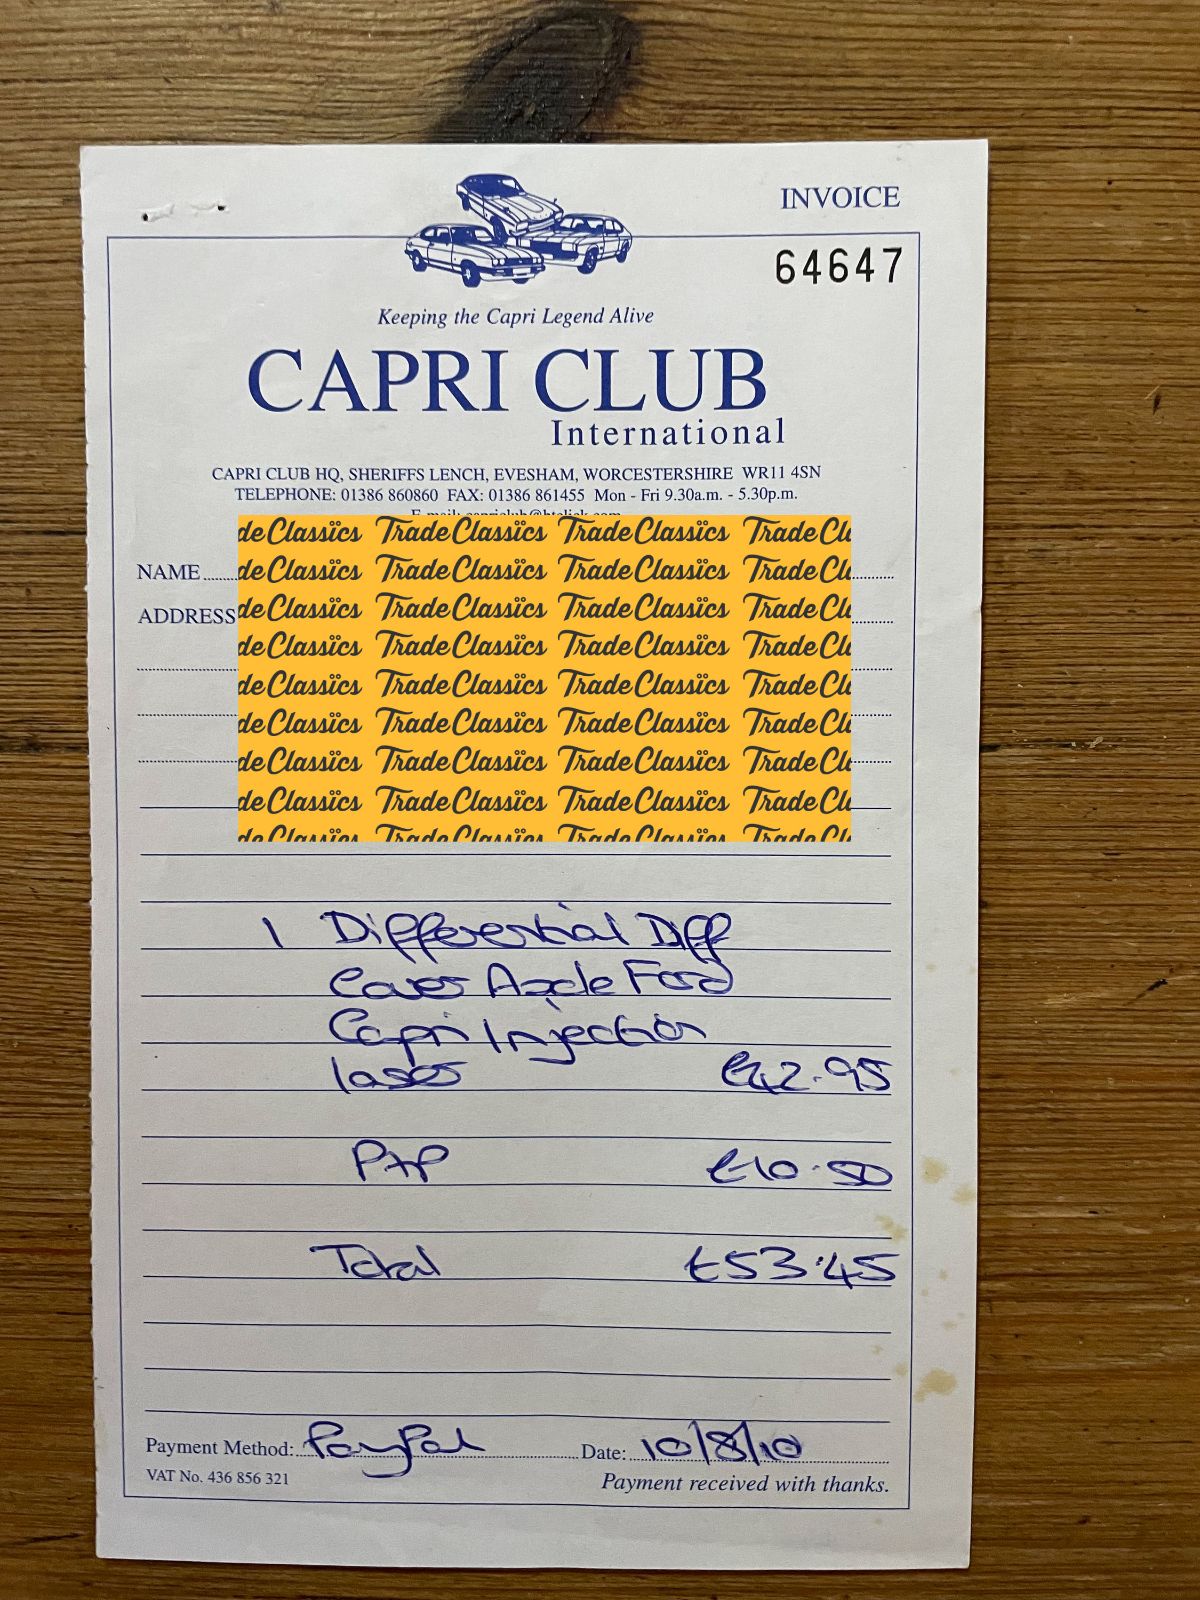 INVOICE
64647
Keeping the Capri Legend Alive
CAPRI CLUB
International
CAPRI CLUB HQ, SHERIFFS LENCH, EVESHAM, WORCESTERSHIRE WR11 4SN
TELEPHONE: 01386 860860 FAX: 01386 861455 Mon - Fri 9.30a.m. - 5.30p.m.
deClassics TradeClassics TradeClassics TradeCl
NAME deClassics TradeClassics TradeClassics TradeCl
ADDRESS deClassics TradeClassics TradeClassics TradeCl
deClassics TradeClassics TradeClassics TradeCl
deClassics TradeClassics TradeClassics TradeCl
deClassics TradeClassics TradeClassics TradeCl
deClassics TradeClassics TradeClassics TradeCl
deClassics TradeClassics TradeClassics TradeCl
deClassics TradeClassics TradeClassics TradeCl
1 Differential Diff
Cover Axle Ford
Capri Injection
laser £42.95
P+P £10.50
Total £53.45
Payment Method: PayPal Date: 10/8/10
VAT No. 436 856 321 Payment received with thanks.